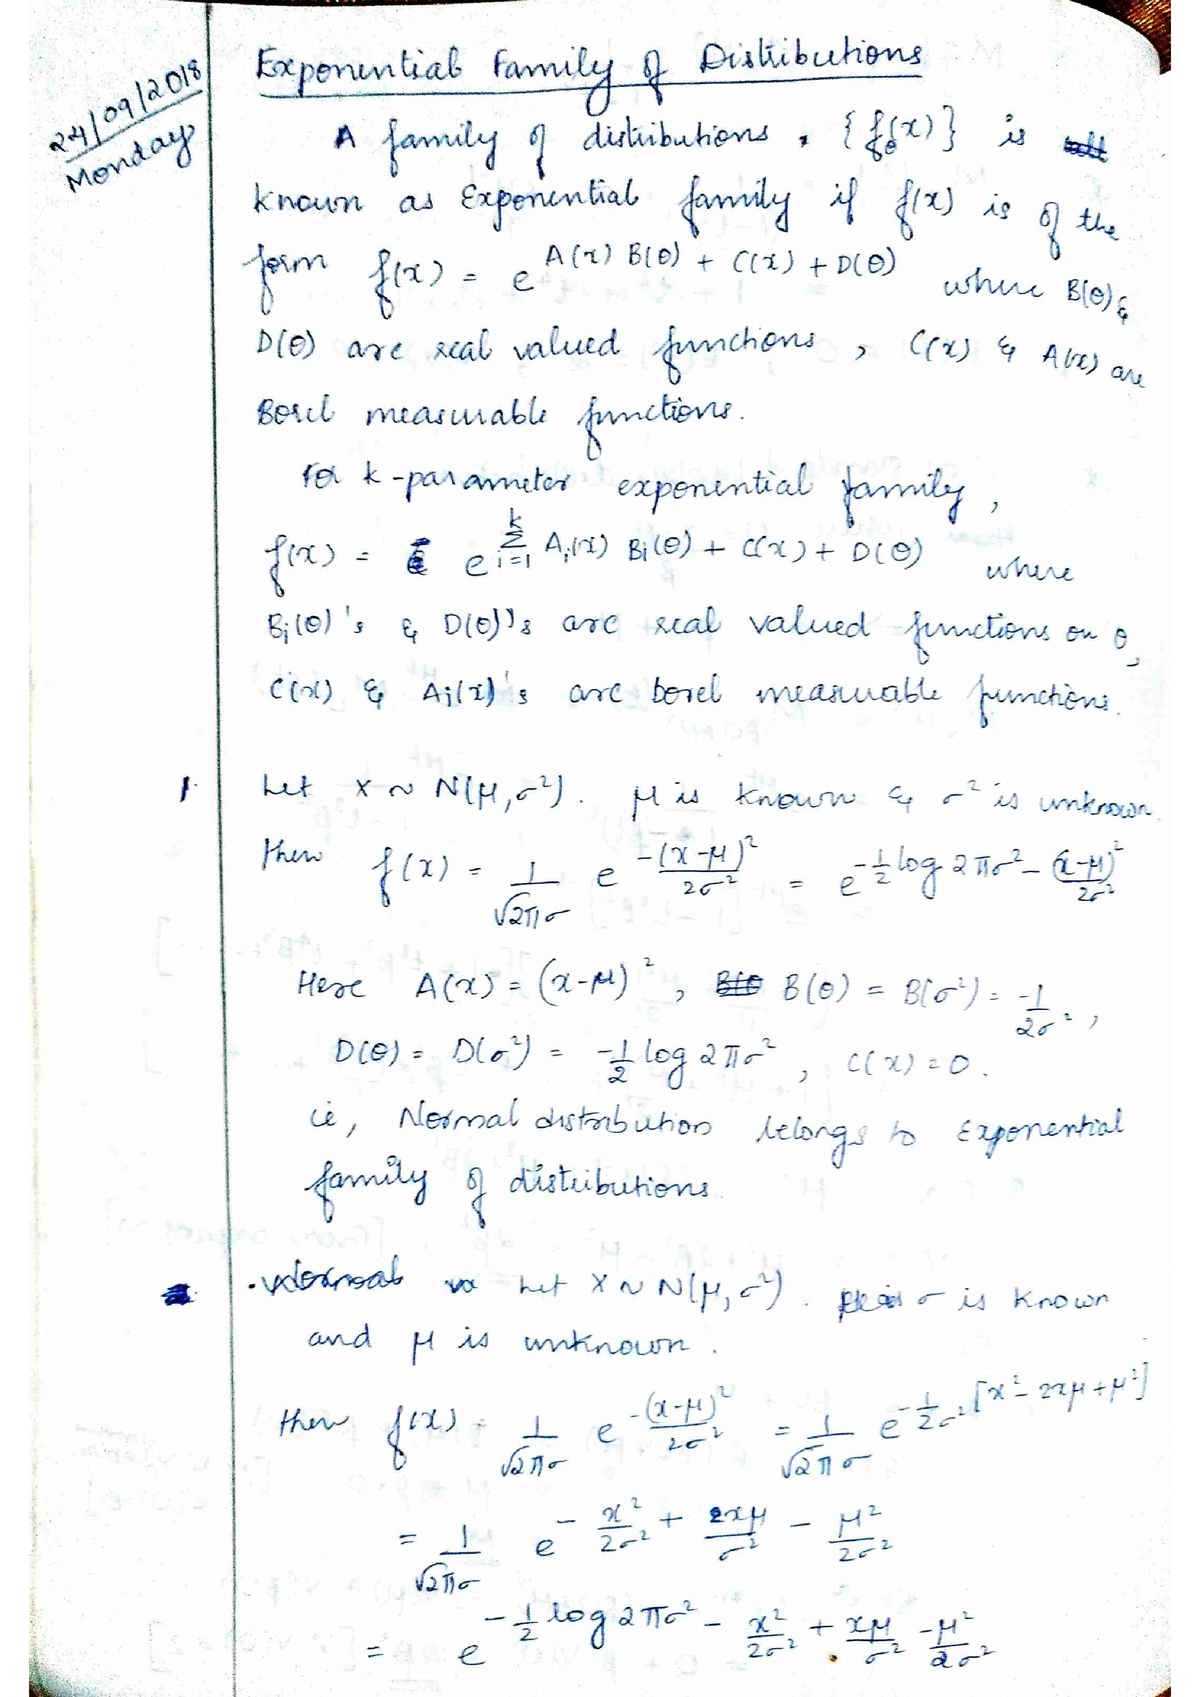 24/09/2018
Monday
Exponential Family of Distributions
A family of distributions, {f_θ(x)} is
known as Exponential family if f(x) is of the
form f(x) = e^{A(x) B(θ) + C(x) + D(θ)} where B(θ) &
D(θ) are real valued functions, C(x) & A(x) are
Borel measurable functions.
For k-parameter exponential family,
f(x) = e^{\sum_{i=1}^{k} A_i(x) B_i(θ) + C(x) + D(θ)} where
B_i(θ)'s & D(θ)'s are real valued functions on θ,
C(x) & A_i(x)'s are borel measurable functions.
1. Let X ~ N(μ, σ²). μ is known & σ² is unknown.
then f(x) = \frac{1}{\sqrt{2π}σ} e^{\frac{-(x-μ)²}{2σ²}} = e^{-\frac{1}{2} log 2πσ² - \frac{(x-μ)²}{2σ²}}
Here A(x) = (x-μ)², B(θ) = B(σ²) = \frac{-1}{2σ²},
D(θ) = D(σ²) = -\frac{1}{2} log 2πσ², C(x) = 0.
ie, Normal distribution belongs to Exponential
family of distributions.
Let X ~ N(μ, σ²). σ is known
and μ is unknown.
then f(x) = \frac{1}{\sqrt{2π}σ} e^{\frac{-(x-μ)²}{2σ²}} = \frac{1}{\sqrt{2π}σ} e^{-\frac{1}{2σ²}[x² - 2xμ + μ²]}
= \frac{1}{\sqrt{2π}σ} e^{-\frac{x²}{2σ²} + \frac{xμ}{σ²} - \frac{μ²}{2σ²}}
= e^{-\frac{1}{2} log 2πσ² - \frac{x²}{2σ²} + \frac{xμ}{σ²} - \frac{μ²}{2σ²}}